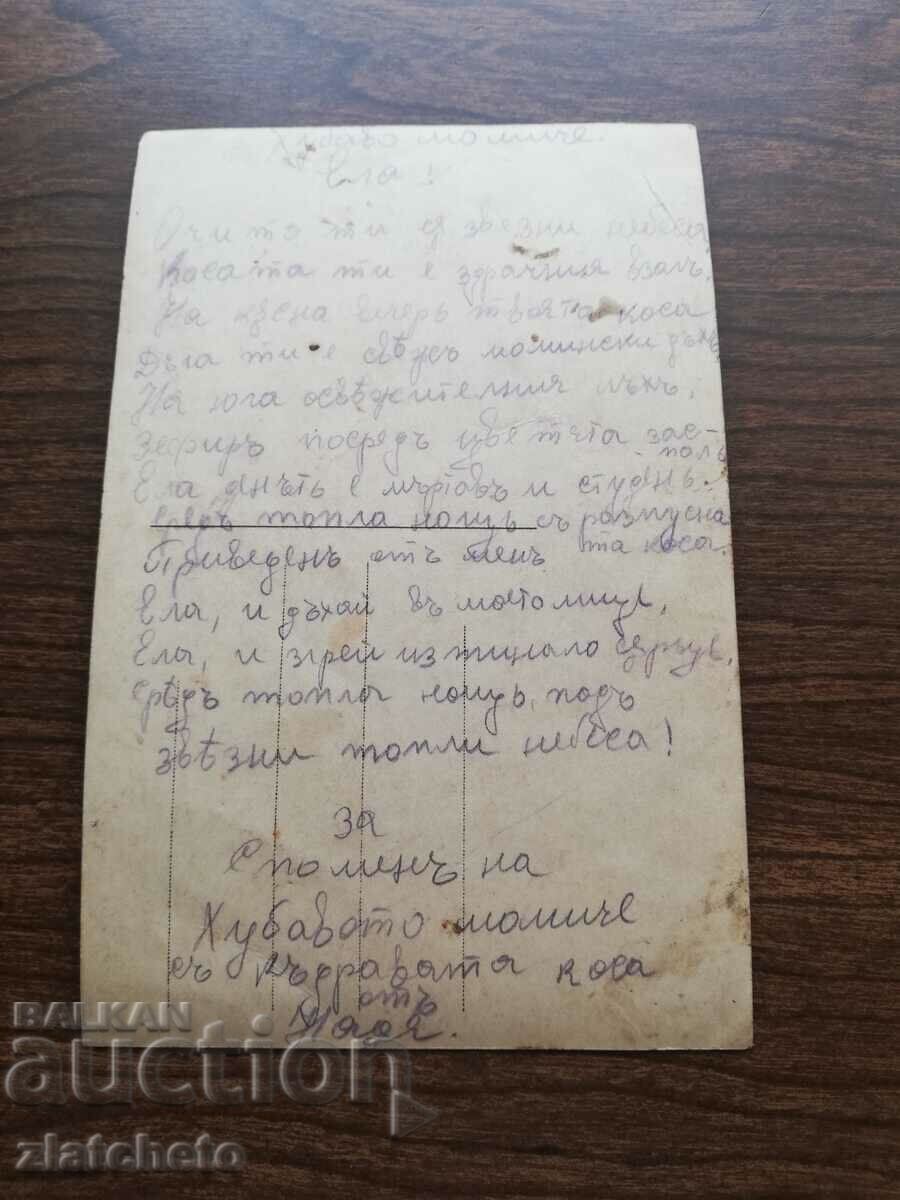 Хубаво момиче.
Ела!
Очита ти са звезни небеса
Косата ти е здрачния
На късна вечерь твоята коса
Дъха ти е свежъ момински дъхъ
На юга освежителния лъхъ,
Зефиръ посредъ цветята зас-
палъ
Ела денътъ е мъртавъ и студенъ.
Средъ топла нощь съ разпусна
та коса.
Приведенъ отъ менъ
Ела, и дъхай въ моето лице,
Ела, и згрей изтинало сърце,
Срѣдъ топла нощь, подъ
звѣзни топли небеса!
За
Споменъ на
Хубавото момиче
съ къдравата коса
отъ
Надя.
BALKAN
auction
zlatcheto